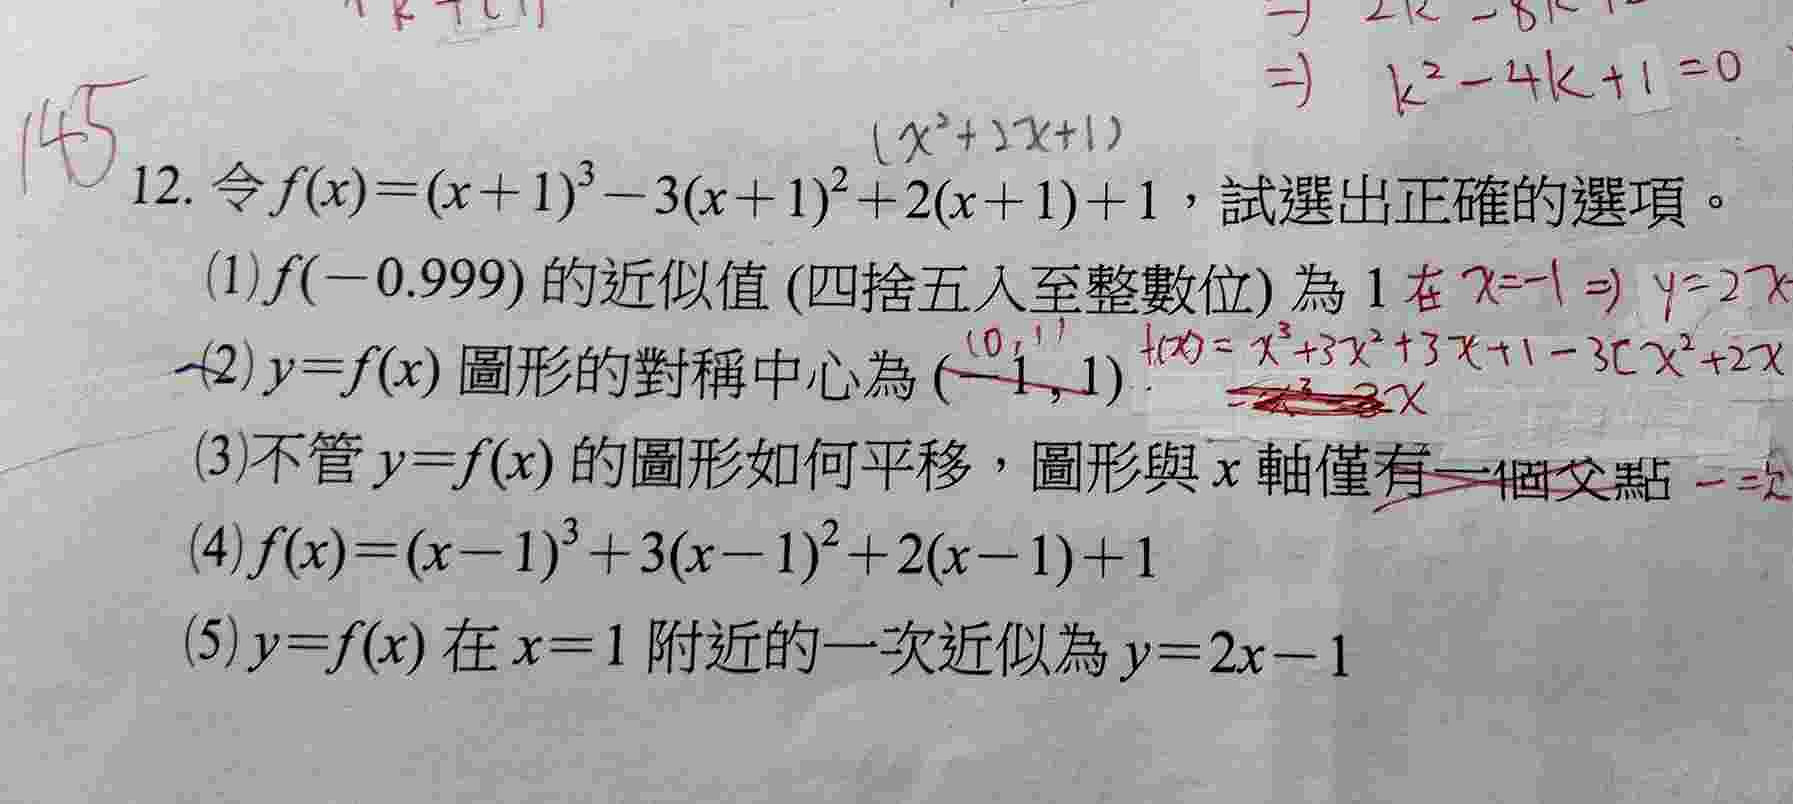 ⇒ k²-4k+1=0
145
(x²+2x+1)
12. 令 f(x)=(x+1)³-3(x+1)²+2(x+1)+1,試選出正確的選項。
(1) f(-0.999) 的近似值 (四捨五入至整數位) 為 1 在 x=-1 ⇒ y=2x
(0,1)
(2) y=f(x) 圖形的對稱中心為 (-1, 1) f(x)=x³+3x²+3x+1-3(x²+2x
(3)不管 y=f(x) 的圖形如何平移,圖形與 x 軸僅有一個交點
(4) f(x)=(x-1)³+3(x-1)²+2(x-1)+1
(5) y=f(x) 在 x=1 附近的一次近似為 y=2x-1